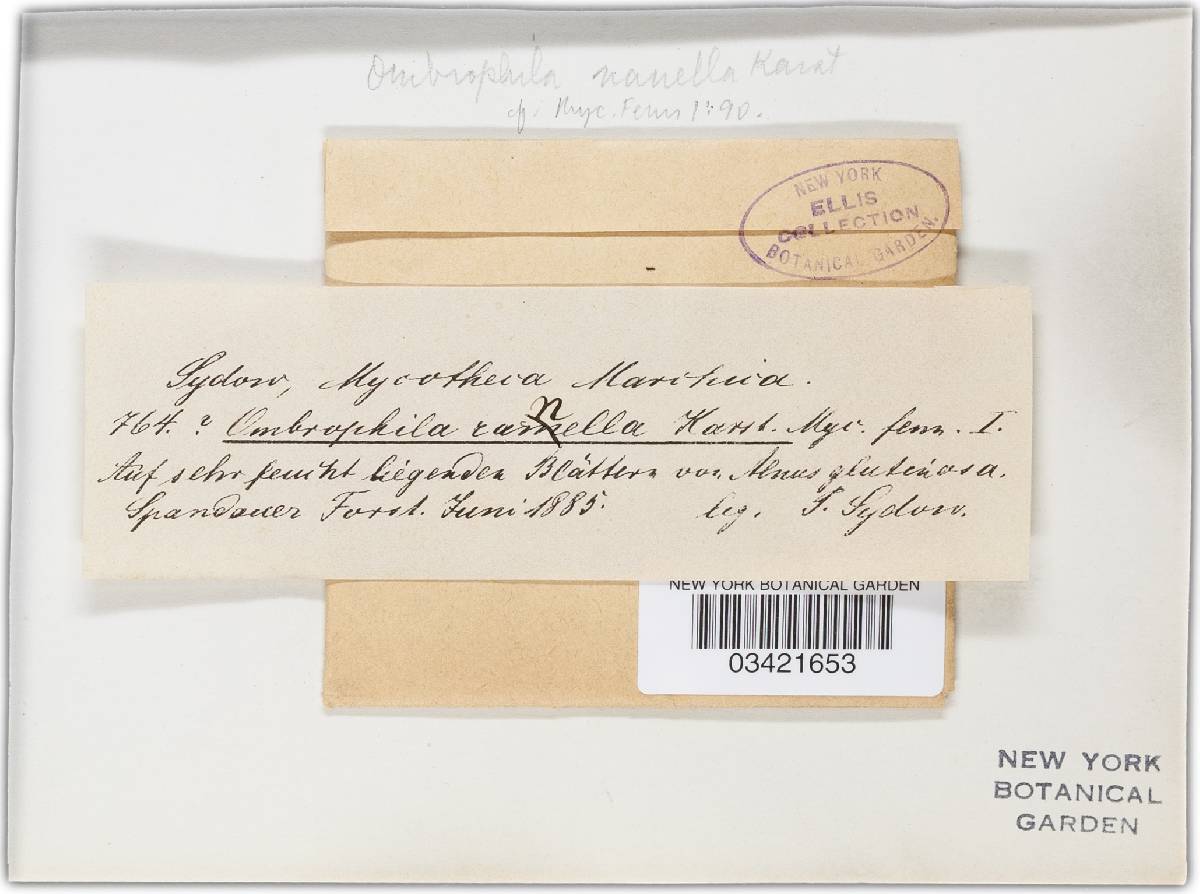 Ombrophila nanella Karst
cf. Myc. Fenn 1:90.
NEW YORK
ELLIS
COLLECTION
BOTANICAL GARDEN.
Sydow, Mycotheca Marchica.
764. ? Ombrophila ramella Karst. Myc. fenn. I.
n
Auf sehr feucht liegenden Blättern von Alnus glutinosa.
Spandauer Forst. Juni 1885. leg. P. Sydow.
NEW YORK BOTANICAL GARDEN
03421653
NEW YORK
BOTANICAL
GARDEN